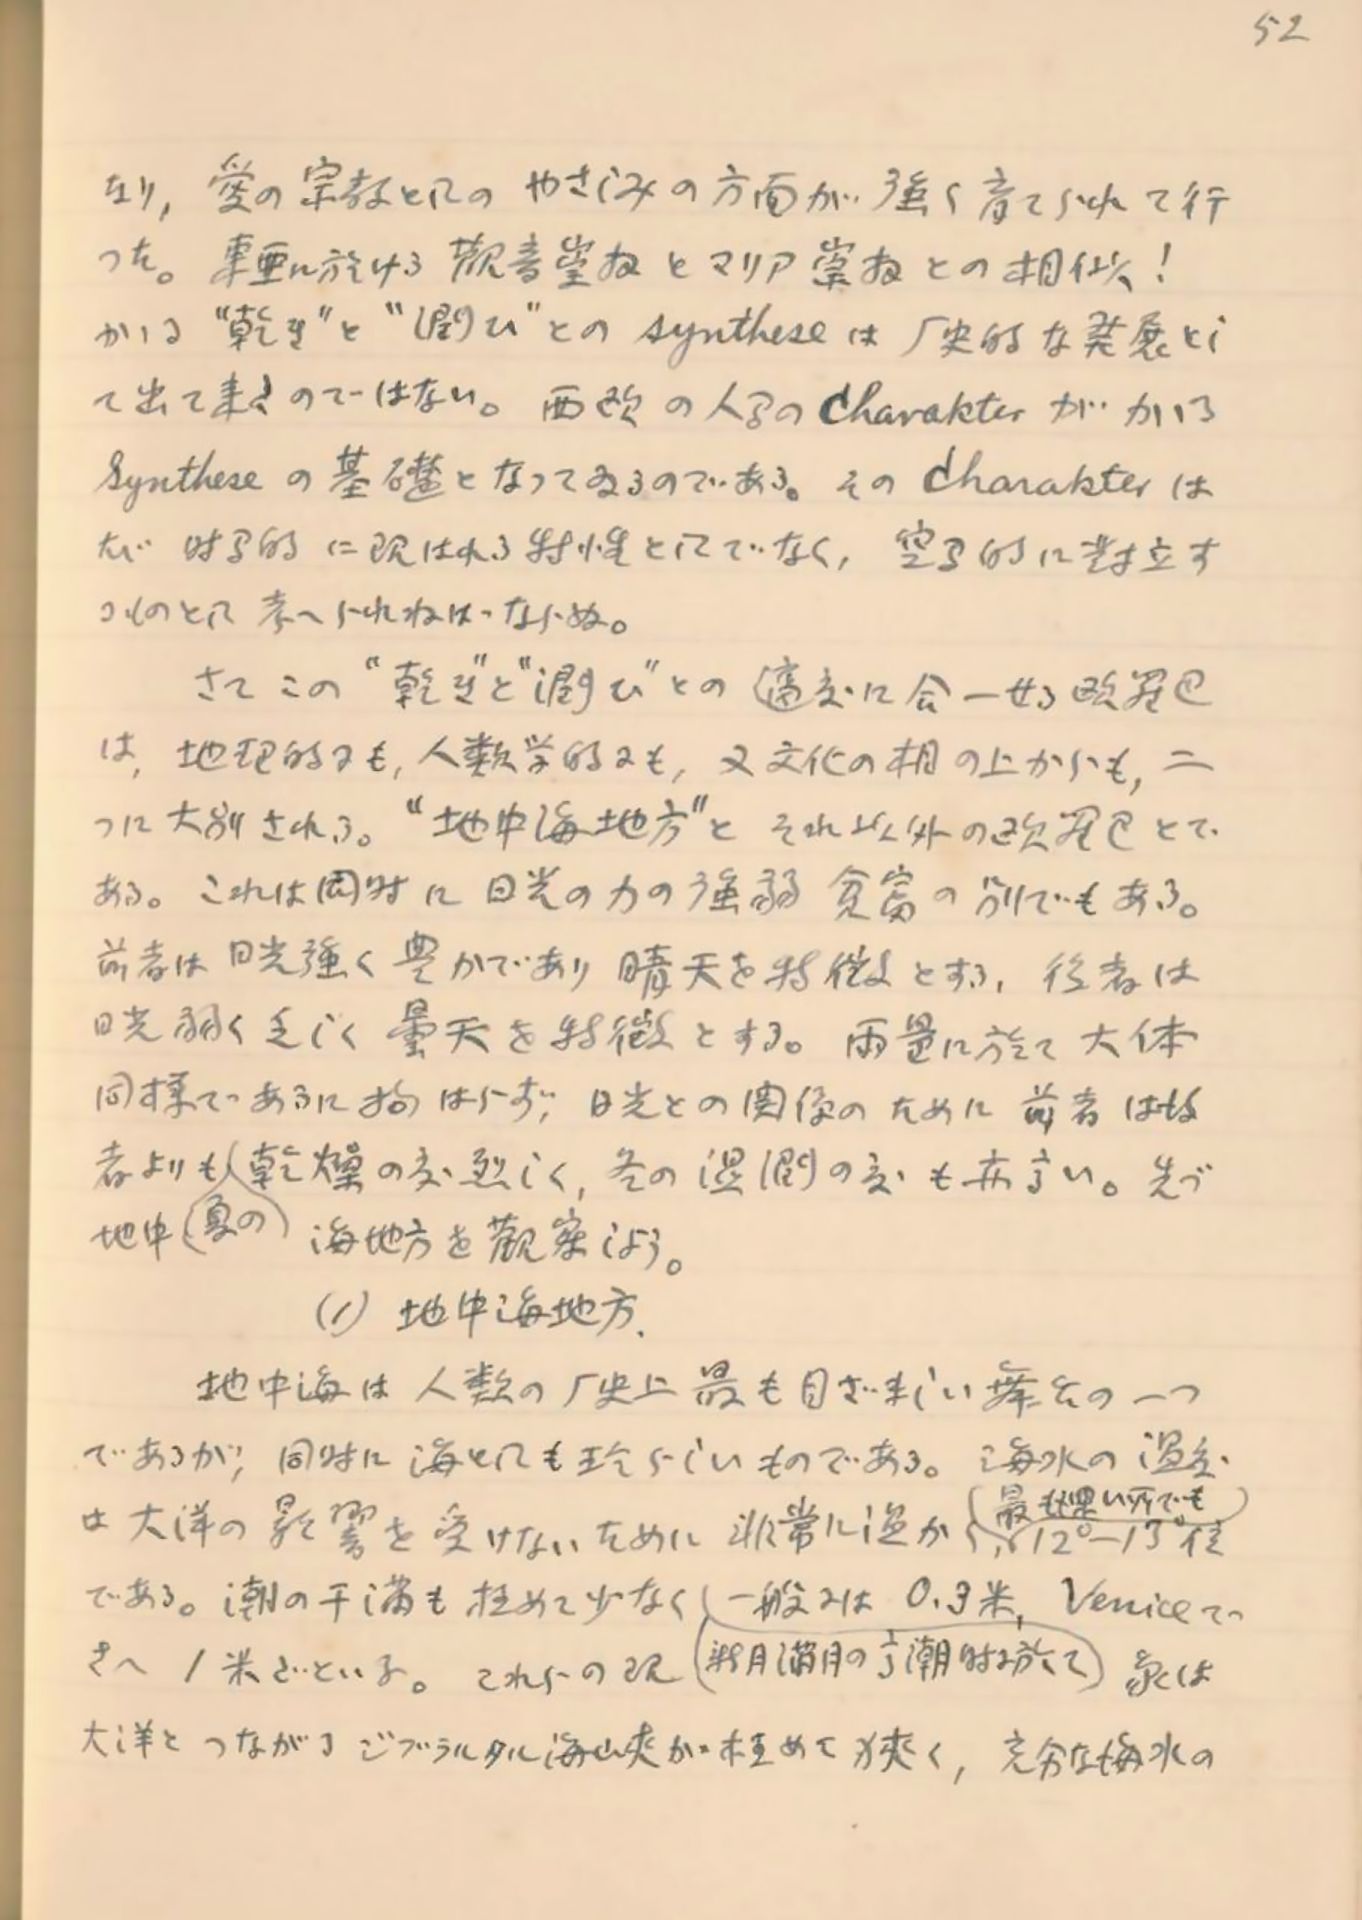 52
なり, 愛の宗教としての やさしみの方面が 強く育てられて行
つた。 東亜に於ける 観音崇拝とマリア崇拝との相似!
かゝる “乾き”と“潤ひ”との synthese は 歴史的な発展とし
て出て来たのではない。 西欧の人間の Charakter が かゝる
Synthese の 基礎となつてゐるのである。 その Charakter は
たゞ 時間的に現はれる特性としてでなく, 空間的に対立す
るものとして 考へられねばならぬ。
さて この “乾き”と“潤ひ”との 適度に合一せる 欧羅巴
は, 地理的にも, 人類学的にも, 又文化の相の上からも, 二
つに 大別される。 “地中海地方”と それ以外の欧羅巴とで
ある。 これは同時に 日光の力の強弱 貧富の別でもある。
前者は 日光強く 豊かであり 晴天を特徴とする, 後者は
日光弱く 乏しく 曇天を特徴とする。 雨量に於て 大体
同様であるに拘はらず, 日光との関係のために 前者は後
者よりも(夏の)乾燥の度烈しく, 冬の湿潤の度も亦高い。 先づ
地中海地方を観察しよう。
(1) 地中海地方.
地中海は 人類の歴史上 最も目ざましい舞台の一つ
であるが, 同時に 海としても珍らしいものである。 海水の温度
は 大洋の影響を受けないために 非常に温かく, (最も黒い所でも) 12°—13°位
である。 潮の干満も 極めて少なく 一般には 0.3米, Veniceで
さへ (新月満月の高潮時に於て) 1米だといふ。 これらの現象は
大洋と つながる ジブラルタル海峡が 極めて狭く, 充分な海水の